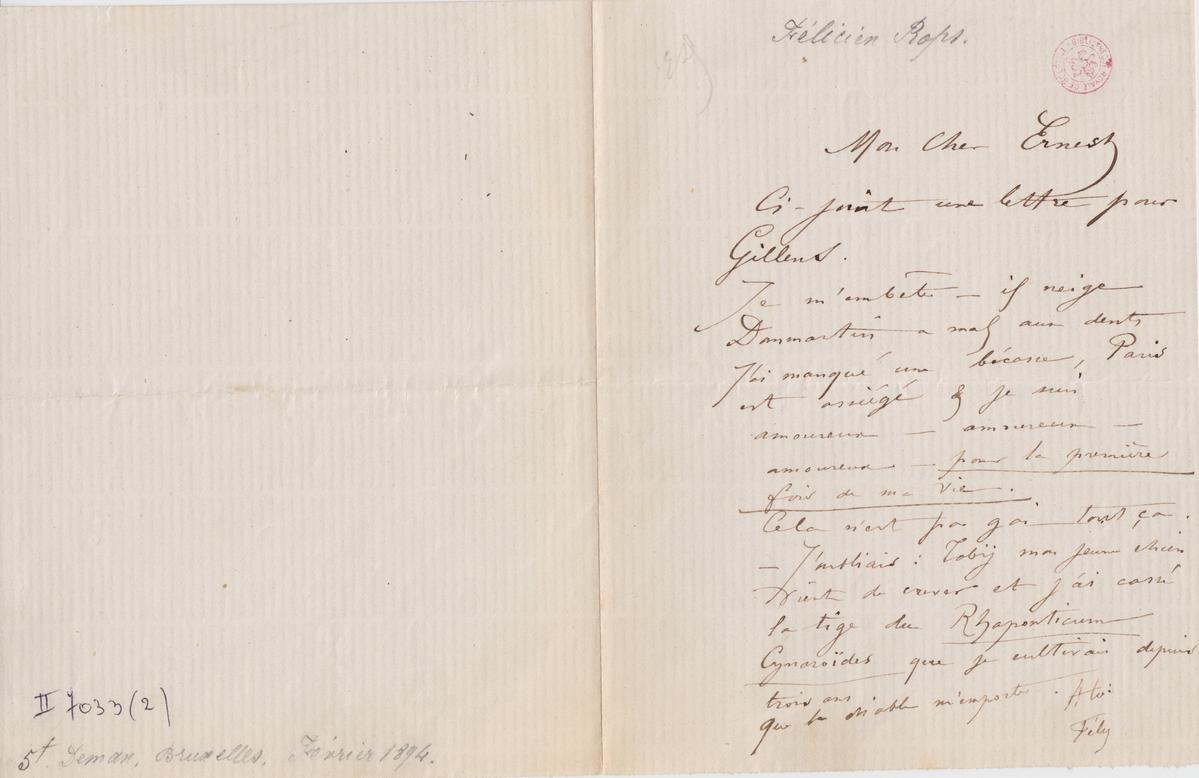 Félicien Rops.
Mon Cher Ernest
Ci-joint une lettre pour
Gillens.
Je m'embête — il neige
Danmartin a mal aux dents
J'ai manqué une bécasse, Paris
est assiégé & je suis
amoureux — amoureux —
amoureux — pour la première
fois de ma vie.
Cela n'est pas gai tout ça.
— J'oubliais : Toby mon jeune chien
vient de crever et j'ai cassé
la tige du Rhaponticum
Cynaroïdes que je cultivais depuis
trois ans
que le diable m'emporte. A toi
Fély
II 7033 (2)
5t Deman, Bruxelles, Février 1894.